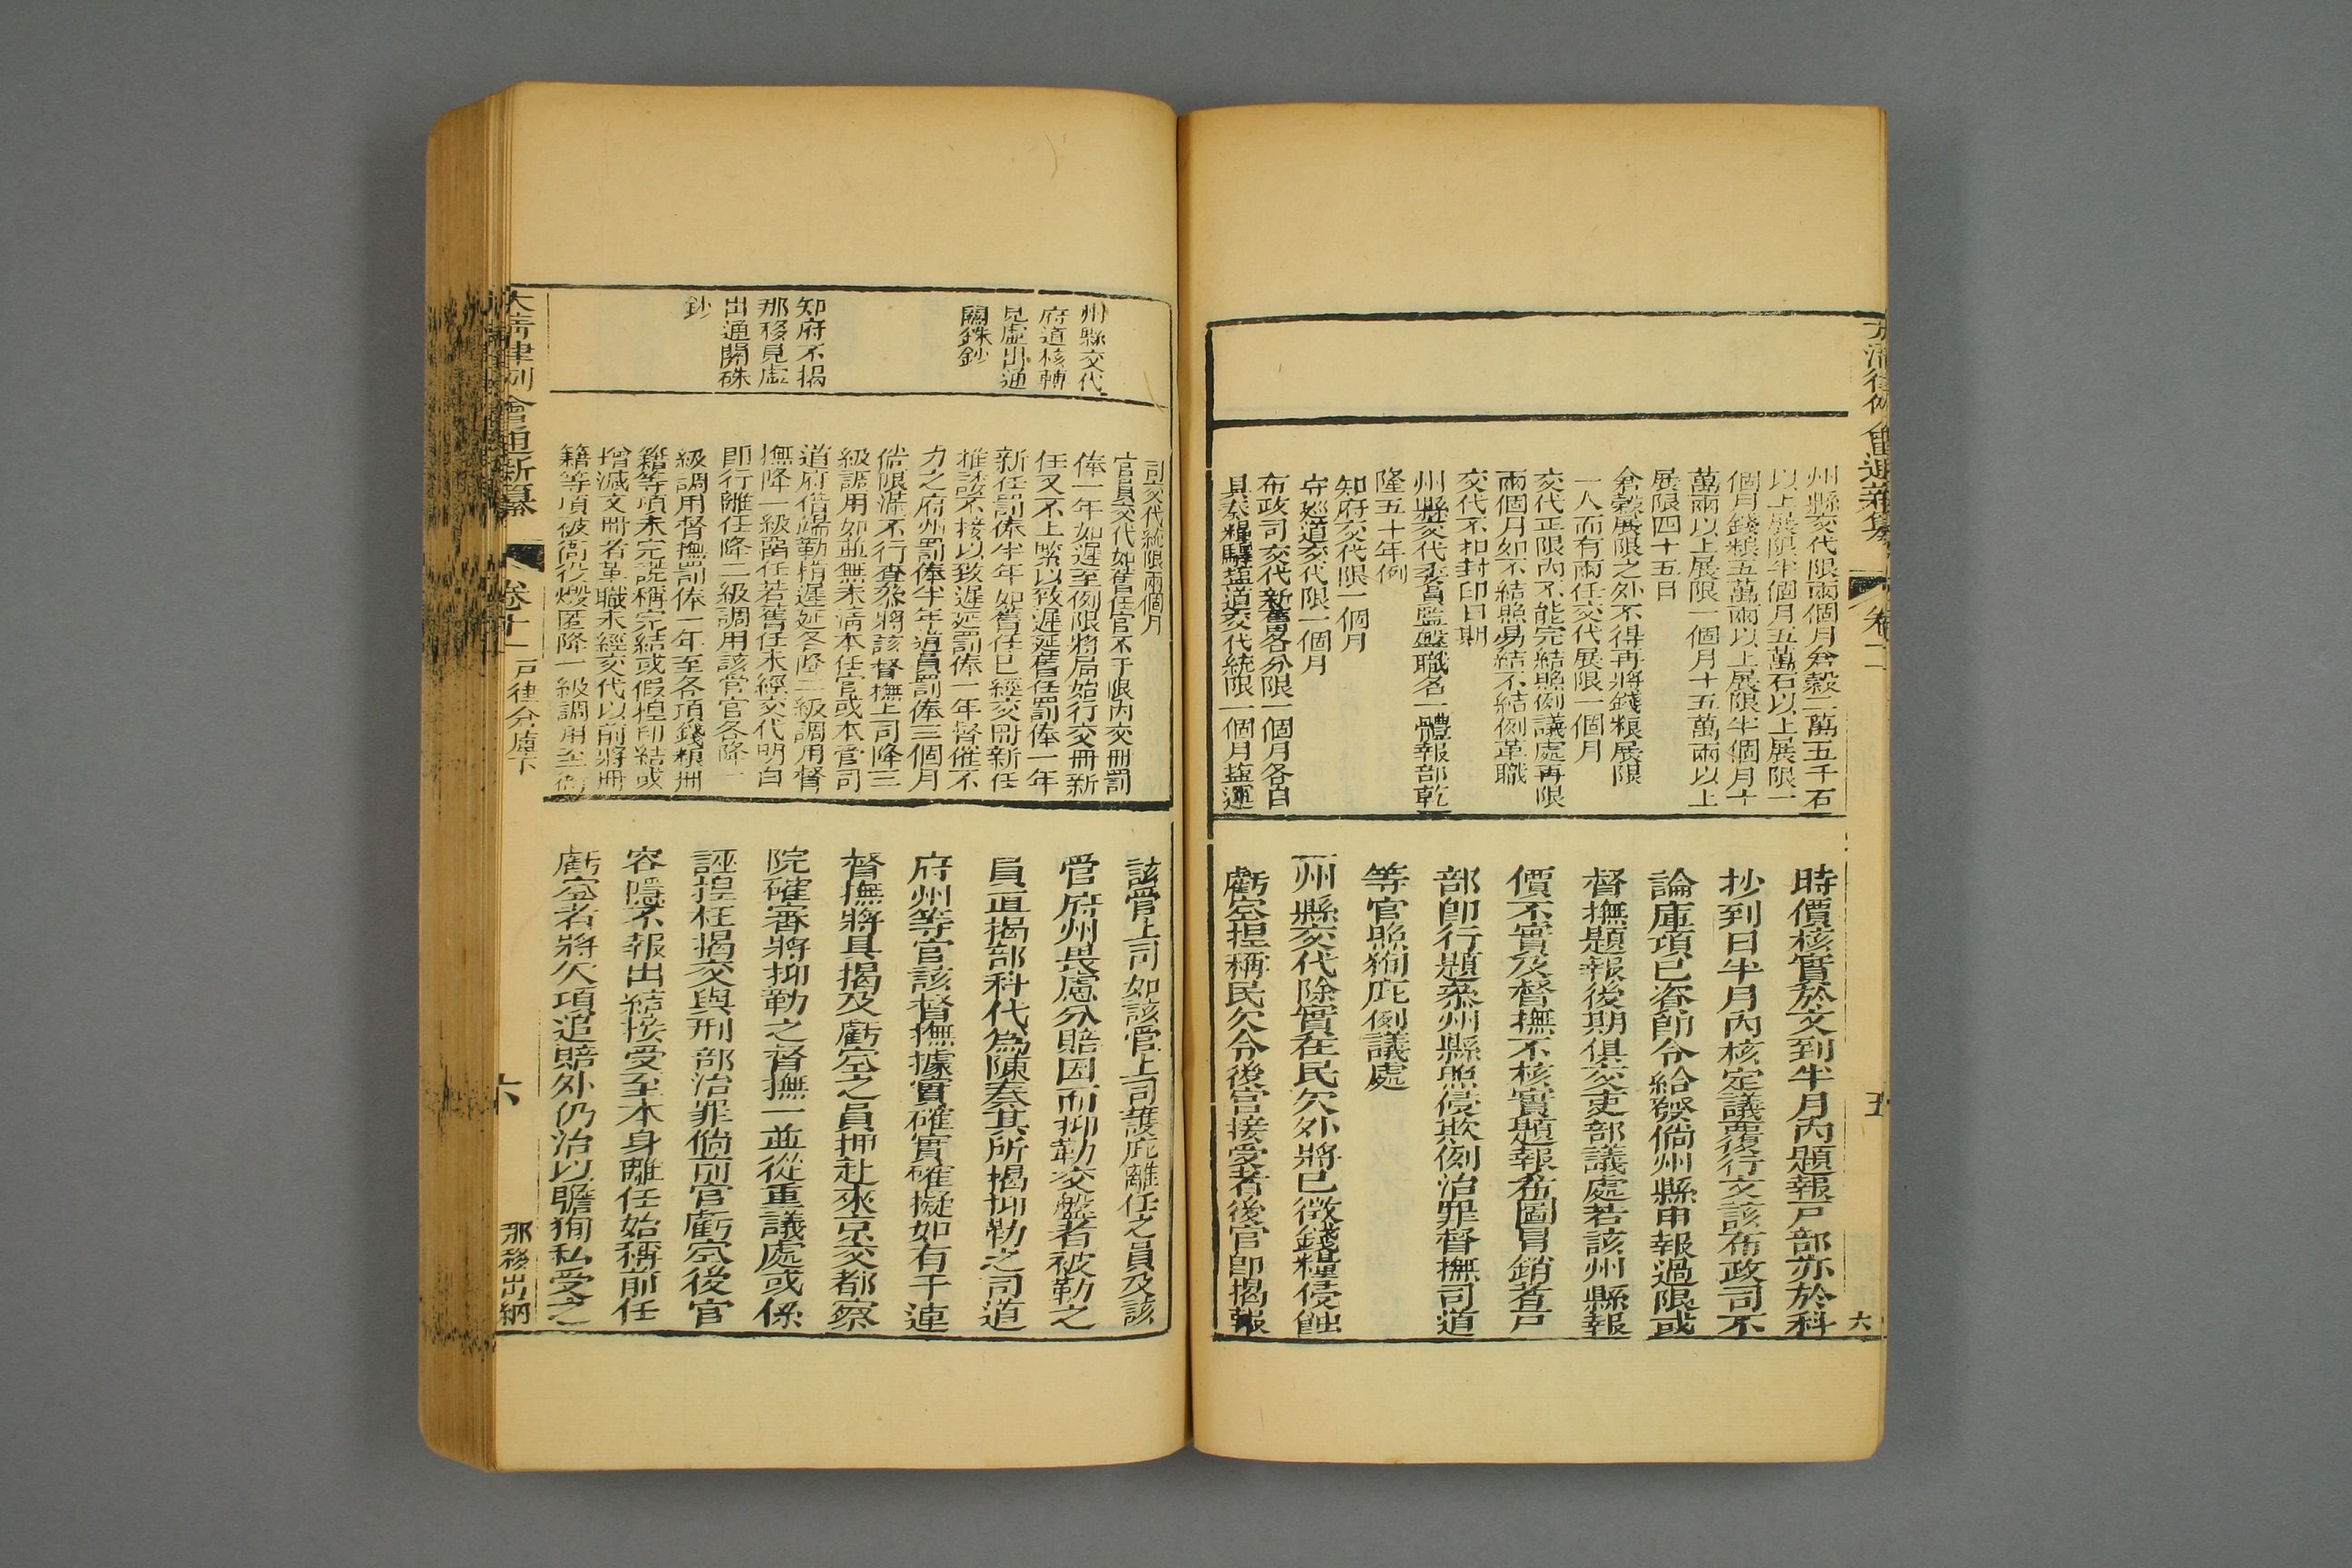 州縣交代限兩個月倉穀二萬五千石
以上展限半個月五萬石以上展限一
個月錢粮五萬兩以上展限半個月十
萬兩以上展限一個月十五萬兩以上
展限四十五日
倉穀展限之外不得再將錢粮展限
一人而有兩任交代展限一個月
交代正限內不能完結照例議處再限
兩個月如不結照易結不結例革職
交代不扣封印日期
州縣交代委員監盤職名一體報部乾
隆五十年例
知府交代限一個月
守廵道交代限一個月
布政司交代新舊畧分限一個月各自
具奏糧驛塩道交代統限一個月塩運
時價核實於文到半月內題報戸部亦於科
抄到日半月內核定議覆行文該布政司不
論庫項已咨飭令給發倘州縣申報過限或
督撫題報後期俱交吏部議處若該州縣報
價不實及督撫不核實題報希圖冒銷者戸
部卽行題叅州縣照侵欺例治罪督撫司道
等官照狥庇例議處
一州縣交代除實在民欠外將已徴錢糧侵蝕
虧空揑稱民欠令後官接受者後官卽揭報
卷十二
五
六
司交代統限兩個月
官員交代如舊任官不于限內交冊罰
俸一年如遲至例限將屆始行交冊新
任又不上緊以致遲延舊任罰俸一年
新任罰俸半年如舊任已經交冊新任
推諉不接以致遲延罰俸一年督催不
力之府州罰俸半年道員罰俸三個月
倘限滿不行查叅將該督撫上司降三
級調用如並無未淸本任官或本管司
道府借端勒掯遲延各降二級調用督
撫降一級留任若舊任未經交代明白
卽行離任降二級調用該管官各降一
級調用督撫罰俸一年至各項錢粮冊
籍等項未完說稱完結或假揑印結或
增減文冊者革職未經交代以前將冊
籍等項被衙役燬匿降一級調用至衙
州縣交代
府道核轉
見虛出通
關硃鈔
知府不揭
那移見虛
出通關硃
鈔
該管上司如該管上司護庇離任之員及該
管府州畏慮分賠因而抑勒交盤者被勒之
員直揭部科代為陳奏其所揭抑勒之司道
府州等官該督撫據實確實確擬如有干連
督撫將具揭及虧空之員押赴來京交都察
院確審將抑勒之督撫一並從重議處或係
誣揑枉揭交與刑部治罪倘前官虧空後官
容隱不報出結接受至本身離任始稱前任
虧空者將欠項追賠外仍治以瞻狥私受之
大淸律例會通新纂
卷十一
戸律倉庫下
六
那移出納